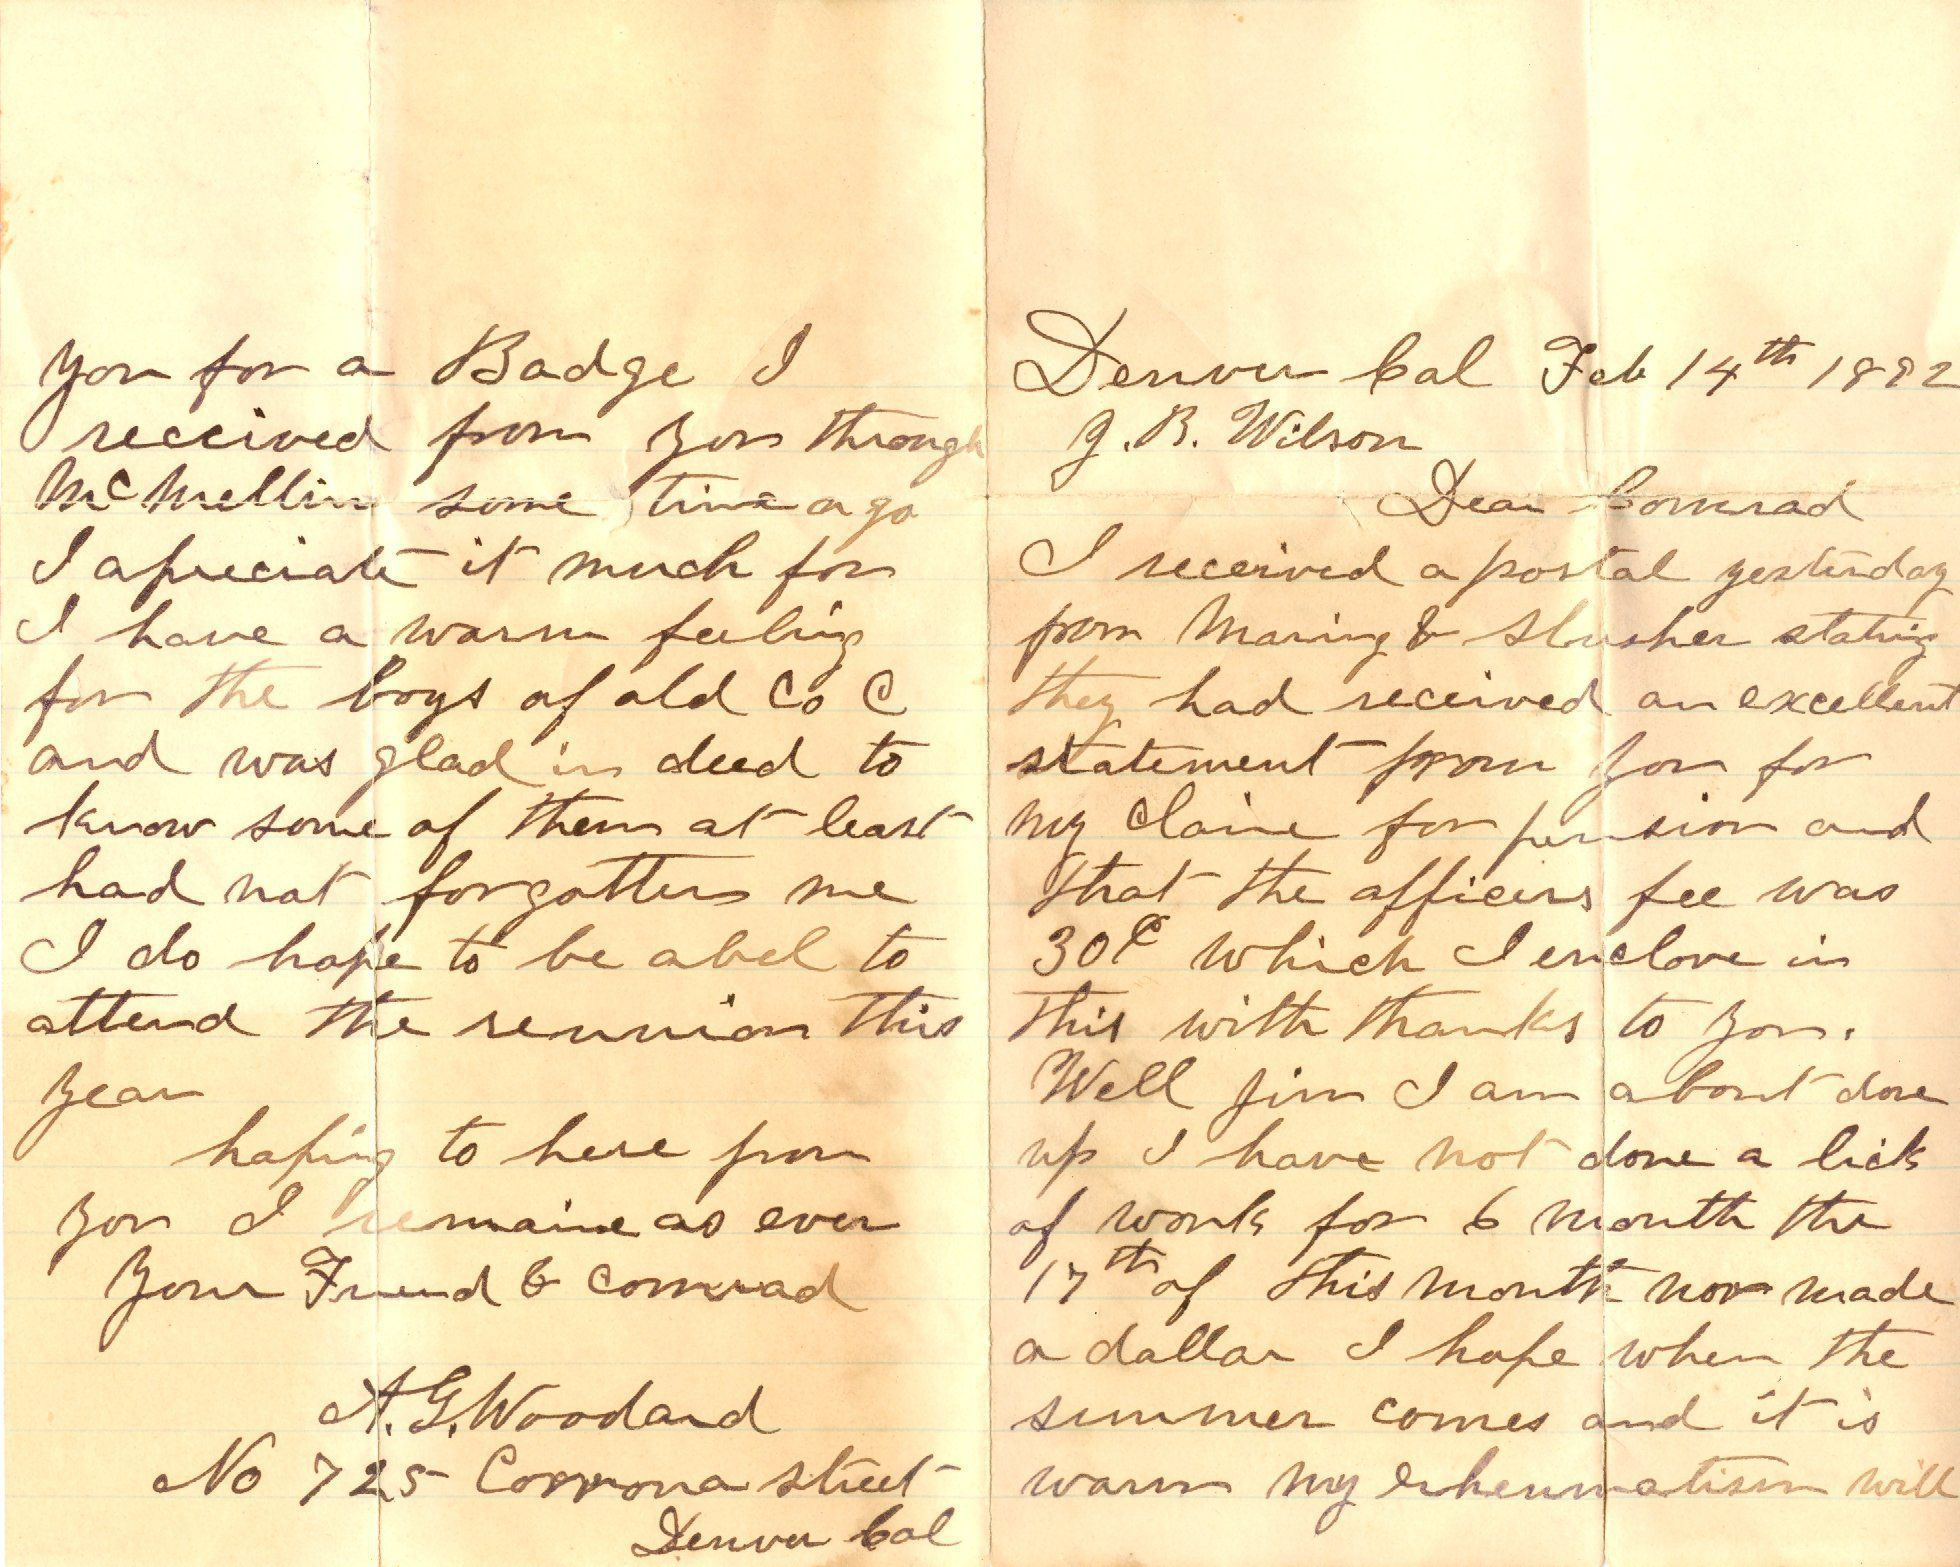 Denver Col Feb 14th 1892
J. B. Wilson
Dear Comrad
I received a postal yesterday
from Maring & Slusher stating
they had received an excellent
statement from you for
my claime for pension and
that the officers fee was
30c which I enclose in
this with thanks to you.
Well Jim I am about done
up I have not done a lick
of work for 6 month the
17th of this month nor made
a dollar I hope when the
summer comes and it is
warm my rheumatism will
you for a Badge I
received from you through
McMellin some time ago
I apreciate it much for
I have a warm feeling
for the boys of old Co C
and was glad in deed to
know some of them at least
had not forgotten me
I do hope to be abel to
attend the reunion this
year
hoping to here from
you I remaine as ever
Your Friend & Comrad
A. G. Woodard
No 725 Corrona street
Denver Col